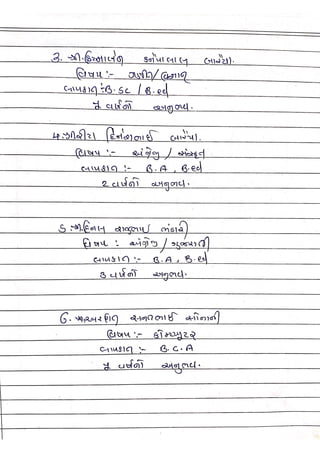 3. શ્રી. હિરલબેન કનૈયાલાલ બારૈયા.
વિષય :- ગણિત / વિજ્ઞાન
લાયકાત :- B.SC / B.ed
૧ વર્ષનો અનુભવ.
૪. દિનેશભાઈ બારૈયા.
વિષય :- અંગ્રેજી / સંસ્કૃત
લાયકાત :- B.A, B.ed
2 વર્ષનો અનુભવ.
5. હિનલ બાબુભાઈ ભંડારી
વિષય : અંગ્રેજી / ગુજરાતી
લાયકાત :- B.A, B.ed
3 વર્ષનો અનુભવ.
6.
વિષય :- કોમ્પ્યુટર
લાયકાત :- B.C.A
૧ વર્ષનો અનુભવ.